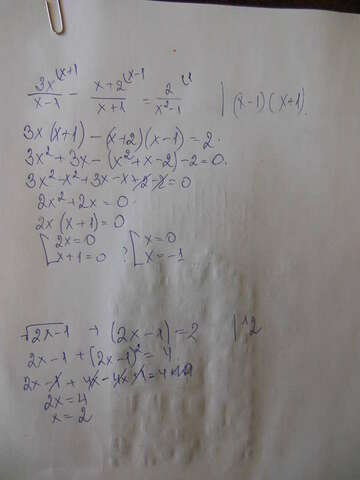 3x(x+1 / x-1 - x+2(x-1 / x+1 = 2(1 / x²-1 | (x-1)(x+1)
3x(x+1) - (x+2)(x-1) = 2
3x²+3x-(x²+x-2)-2=0
3x²-x²+3x-x+2-2=0
2x²+2x=0
2x(x+1)=0
[2x=0 x+1=0 ; [x=0 x=-1
√2x-1 + (2x-1)=2 |^2
2x-1+(2x-1)²=4
2x-1+4x-4x+1=4
2x=4
x=2